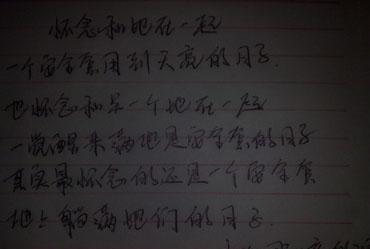 怀念和她在一起
一个安全套用到天亮的日子.
也怀念和另一个她在一起
一觉醒来满地是安全套的日子
其实最怀念的还是一个安全套
地上躺满她们的日子.